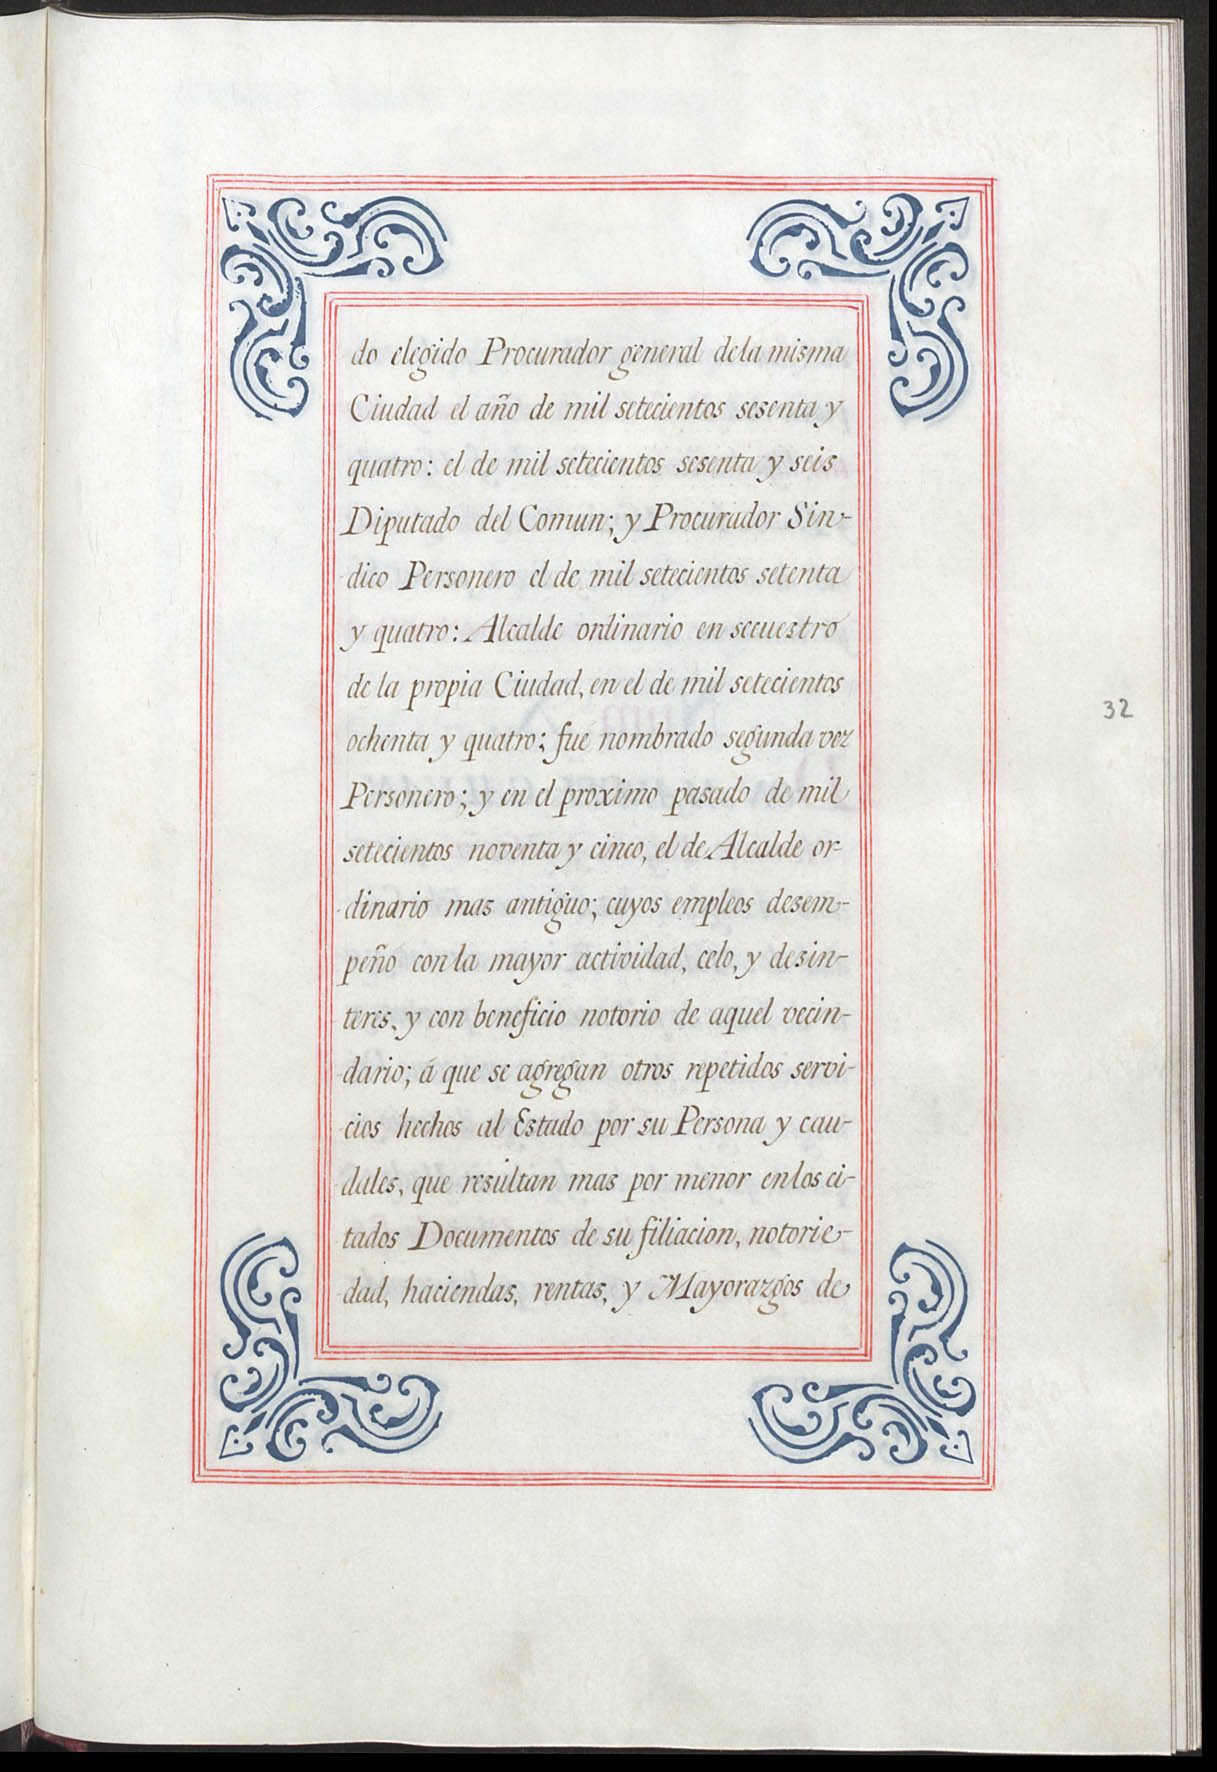 do elegido Procurador general dela misma
Ciudad el año de mil setecientos sesenta y
quatro: el de mil setecientos sesenta y seis
Diputado del Comun; y Procurador Sin-
dico Personero el de mil setecientos setenta
y quatro: Alcalde ordinario en secuestro
de la propia Ciudad, en el de mil setecientos
ochenta y quatro; fué nombrado segunda vez
Personero; y en el proximo pasado de mil
setecientos noventa y cinco, el de Alcalde or-
dinario mas antiguo; cuyos empleos desem-
peñó con la mayor actividad, celo, y desin-
teres, y con beneficio notorio de aquel vecin-
dario; á que se agregan otros repetidos servi-
cios hechos al Estado por su Persona y cau-
dales, que resultan mas por menor enlos ci-
tados Documentos de su filiacion, notorie-
dad, haciendas, rentas, y Mayorazgos de
32